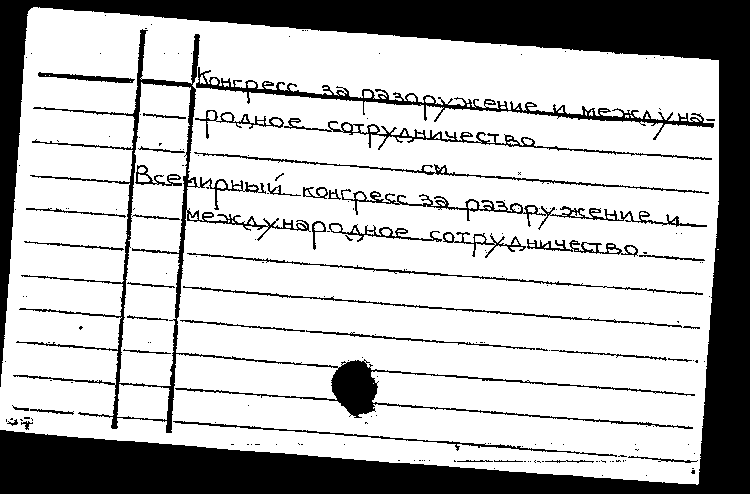 Конгресс за разоружение и междуна-
родное сотрудничество
см.
Всемирный конгресс за разоружение и
международное сотрудничество.